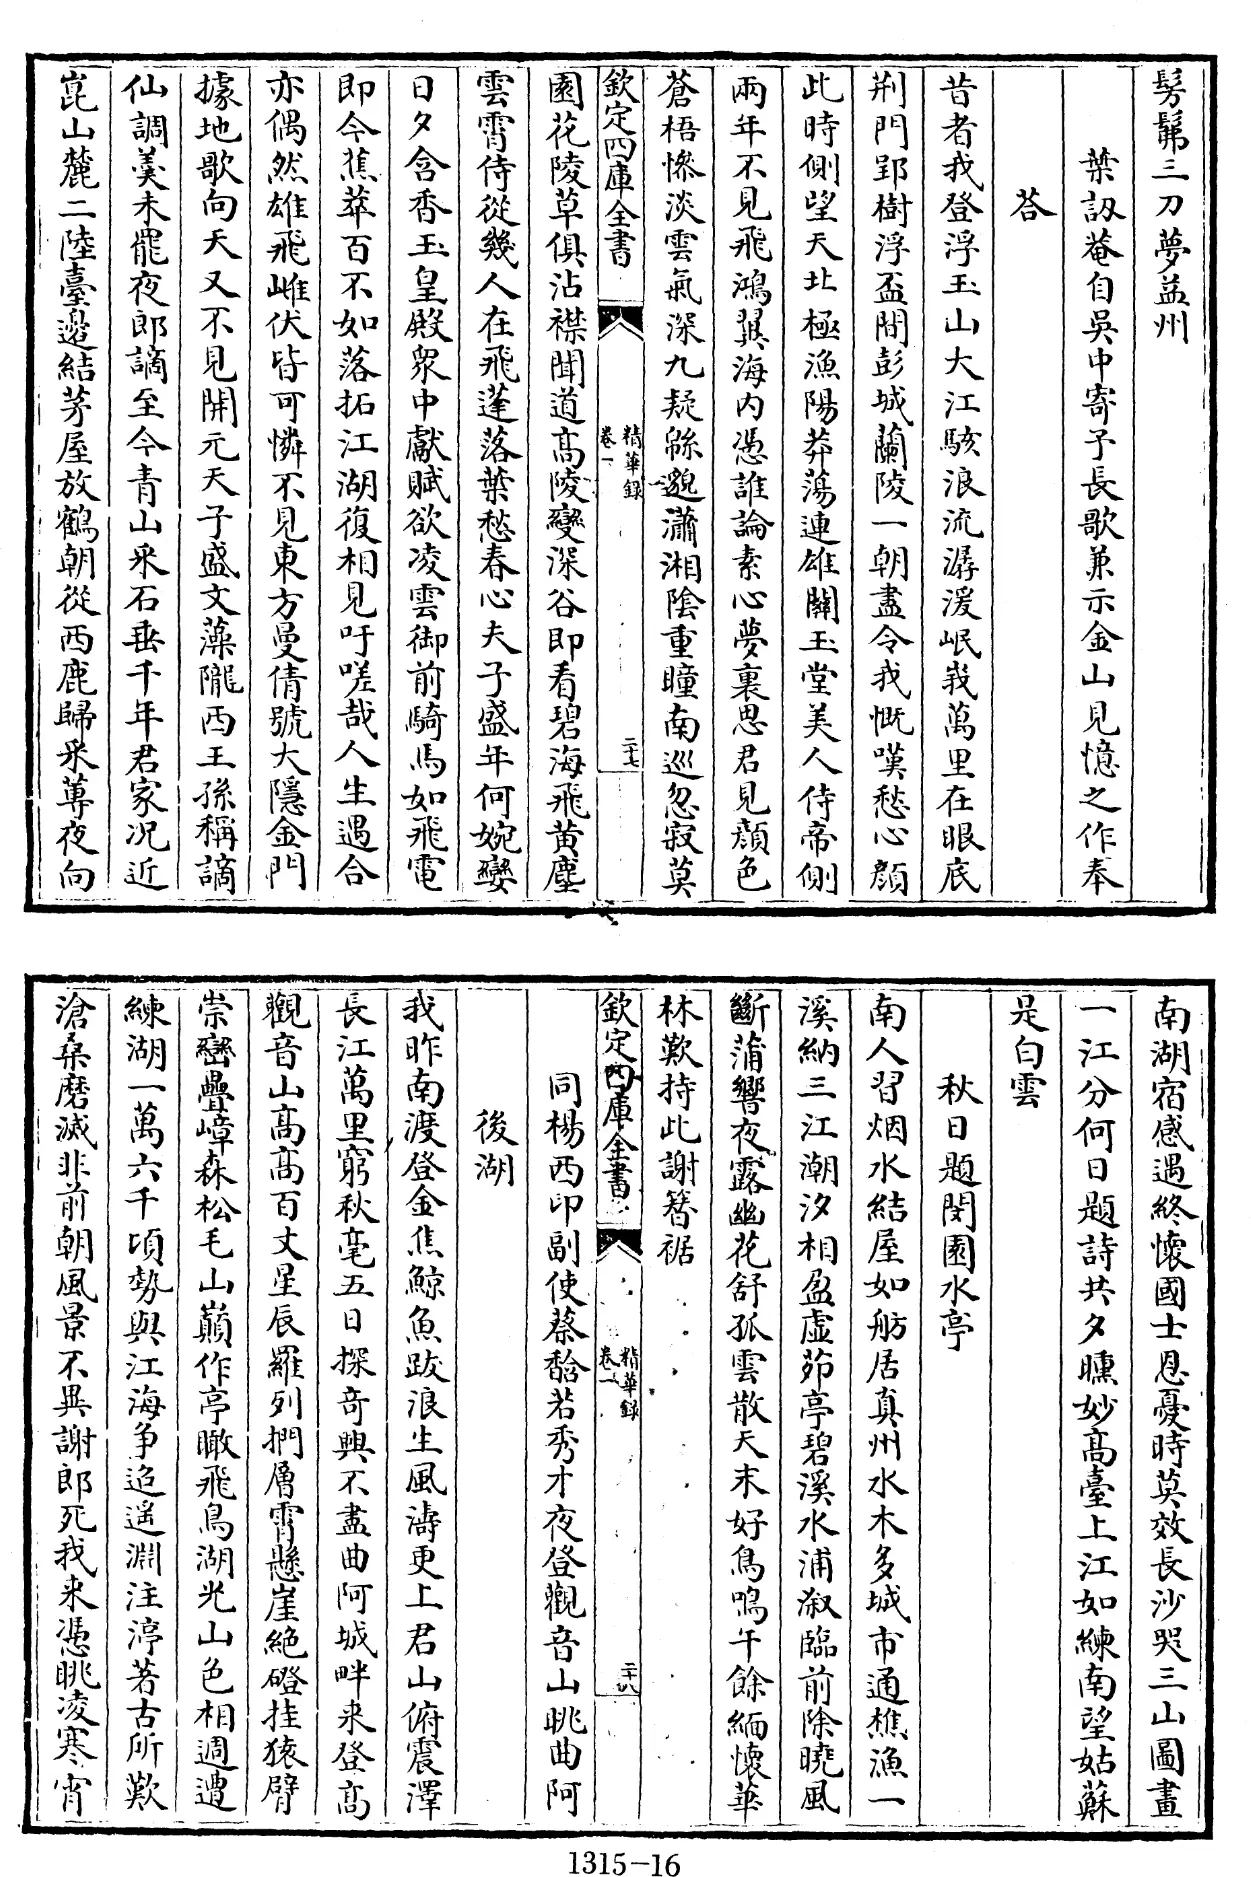 髣髴三刀夢益州
葉訒菴自吳中寄予長歌兼示金山見憶之作奉
答
昔者我登浮玉山大江駭浪流潺湲岷峩萬里在眼底
荆門郢樹浮盃間彭城蘭陵一朝盡令我慨嘆愁心顔
此時側望天北極漁陽莽蕩連雄關玉堂美人侍帝側
兩年不見飛鴻翼海内憑誰論素心夢裏思君見顔色
蒼梧慘淡雲氣深九疑緜邈瀟湘陰重瞳南巡忽寂莫
欽定四庫全書
精華録
卷一
二十七
園花陵草俱沾襟聞道高陵變深谷即看碧海飛黄塵
雲霄侍從幾人在飛蓬落葉愁春心夫子盛年何婉孌
日夕含香玉皇殿衆中獻賦欲凌雲御前騎馬如飛電
即今蕉萃百不如落拓江湖復相見吁嗟哉人生遇合
亦偶然雄飛雌伏皆可憐不見東方曼倩號大隱金門
據地歌向天又不見開元天子盛文藻隴西王孫稱謫
仙調羹未罷夜郎謫至今青山采石垂千年君家况近
崑山麓二陸臺邊結茅屋放鶴朝從西鹿歸采蓴夜向
南湖宿感遇終懷國士恩憂時莫效長沙哭三山圖畫
一江分何日題詩共夕曛妙高臺上江如練南望姑蘇
是白雲
秋日題閔園水亭
南人習烟水結屋如舫居真州水木多城市通樵漁一
溪納三江潮汐相盈虛茆亭碧溪水浦溆臨前除曉風
斷蒲響夜露幽花舒孤雲散天末好鳥鳴午餘緬懷華
林歎持此謝簪裾
欽定四庫全書
精華録
卷一
二十八
同楊西印副使蔡馠若秀才夜登觀音山眺曲阿
後湖
我昨南渡登金焦鯨魚跋浪生風濤更上君山俯震澤
長江萬里窮秋毫五日探奇興不盡曲阿城畔来登高
觀音山高高百丈星辰羅列捫層霄懸崖絶磴挂猿臂
崇巒疊嶂森松毛山巔作亭瞰飛鳥湖光山色相週遭
練湖一萬六千頃勢與江海争迢遥淵注渟著古所歎
滄桑磨滅非前朝風景不異謝郎死我来憑眺凌寒宵
1315-16